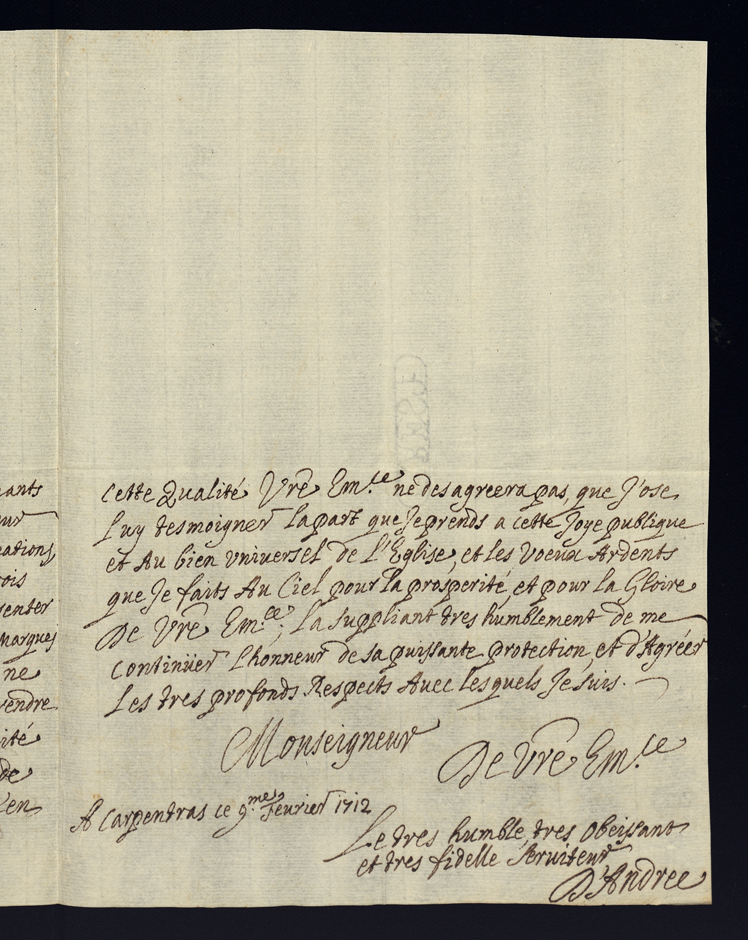 ants
eur
ations
ois
senter
Marques
ne
rendre
ité
de
en
Cette Qualité Vre Em.ce ne desagreera pas, que J'ose
Luy tesmoigner la part que Je prends a cette Joye publique
et Au bien Vniversel de L'Eglise, et les Voeux Ardents
que Je faits Au Ciel pour la prosperité, et pour la Gloire
De Vre Em.ce; La suppliant tres humblement de me
Continüer l'honneur de sa puissante protection, et d'Agréer
Les tres profonds Respects Avec lesquels Je suis.
Monseigneur
De Vre Em.ce
A Carpentras ce 9.me Fevrier 1712
Le tres humble, tres Obeissant
et tres fidelle Serviteur
D'Andree